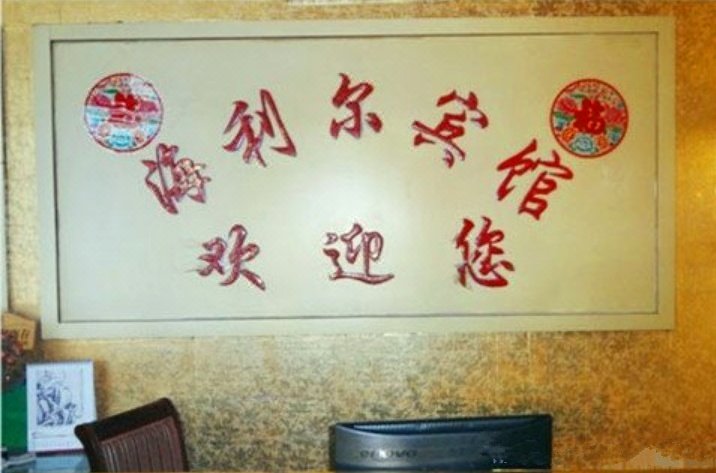 海利尔宾馆
欢迎您
福
lenovo